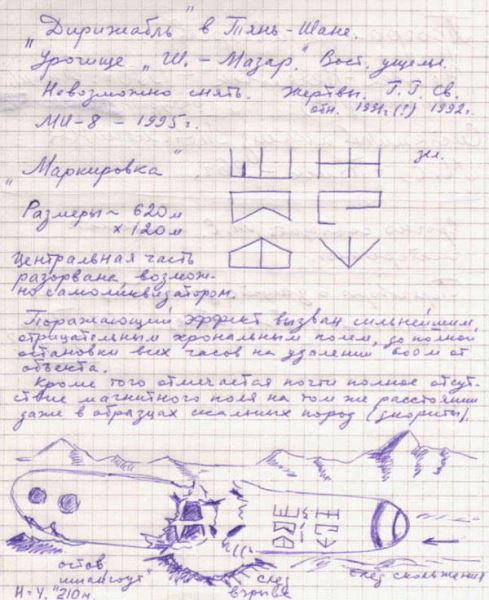 „Дирижабль" в Тянь-Шане.
Урочище „Ш.-Мазар." Вост. ущелье.
Невозможно снять. Жертвы. Г.Г. Св.
отн. 1991 г. (?) 1992 г.
МИ-8 - 1995 г.
„Маркировка" зел.
Размеры ~ 620 м
x 120 м
Центральная часть
разорвана, возмож-
но самоликвизатором.
Поражающий эффект вызван сильнейшим,
отрицательным хрональным полем, до полной
остановки всех часов на удалении 800 м от
объекта.
Кроме того отмечается почти полное отсут-
ствие магнитного поля на том же расстоянии
даже в образцах скальных пород (диориты).
остов
„шпангоут"
след
взрыва
след скольжения
H=У. 210 м.